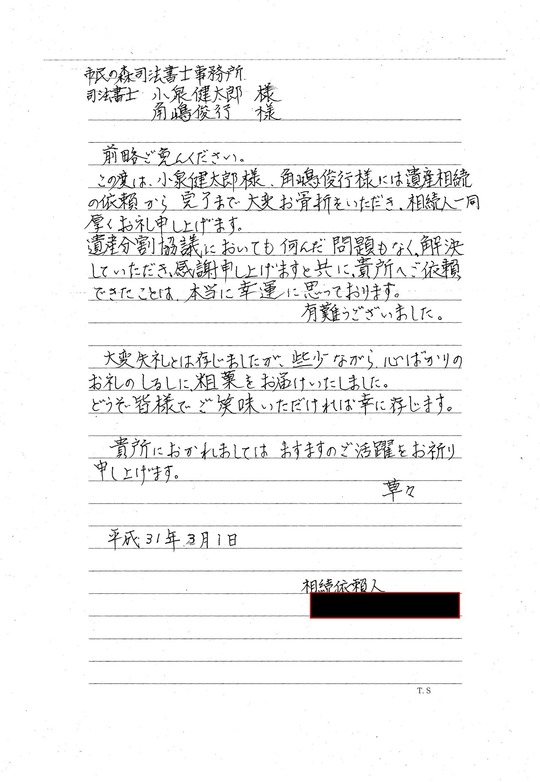 市民の森司法書士事務所
司法書士 小泉健太郎 様
角嶋俊行 様
前略ご免んください。
この度は、小泉健太郎様、角嶋俊行様には遺産相続
の依頼から 完了まで 大変お骨折をいただき、相続人一同
厚くお礼申し上げます。
遺産分割協議においても何んだ問題もなく、解決
していただき、感謝申し上げますと共に、貴所へご依頼
できたことは、本当に幸運に思っております。
有難うございました。
大変失礼とは存じましたが、些少ながら、心ばかりの
お礼のしるしに、粗菓をお届けいたしました。
どうぞ皆様でご笑味いただければ幸に存じます。
貴所におかれましては ますますのご活躍をお祈り
申し上げます。
草々
平成31年3月1日
相続依頼人
T. S